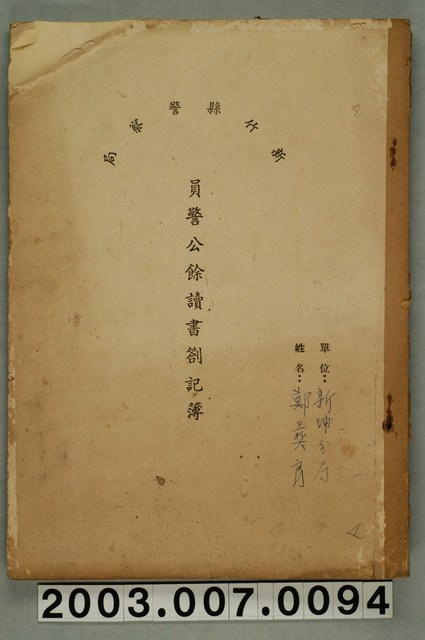 新竹縣警察局
員警公餘讀書劄記簿
單位：新埔分局
姓名：鄭
2003.007.0094